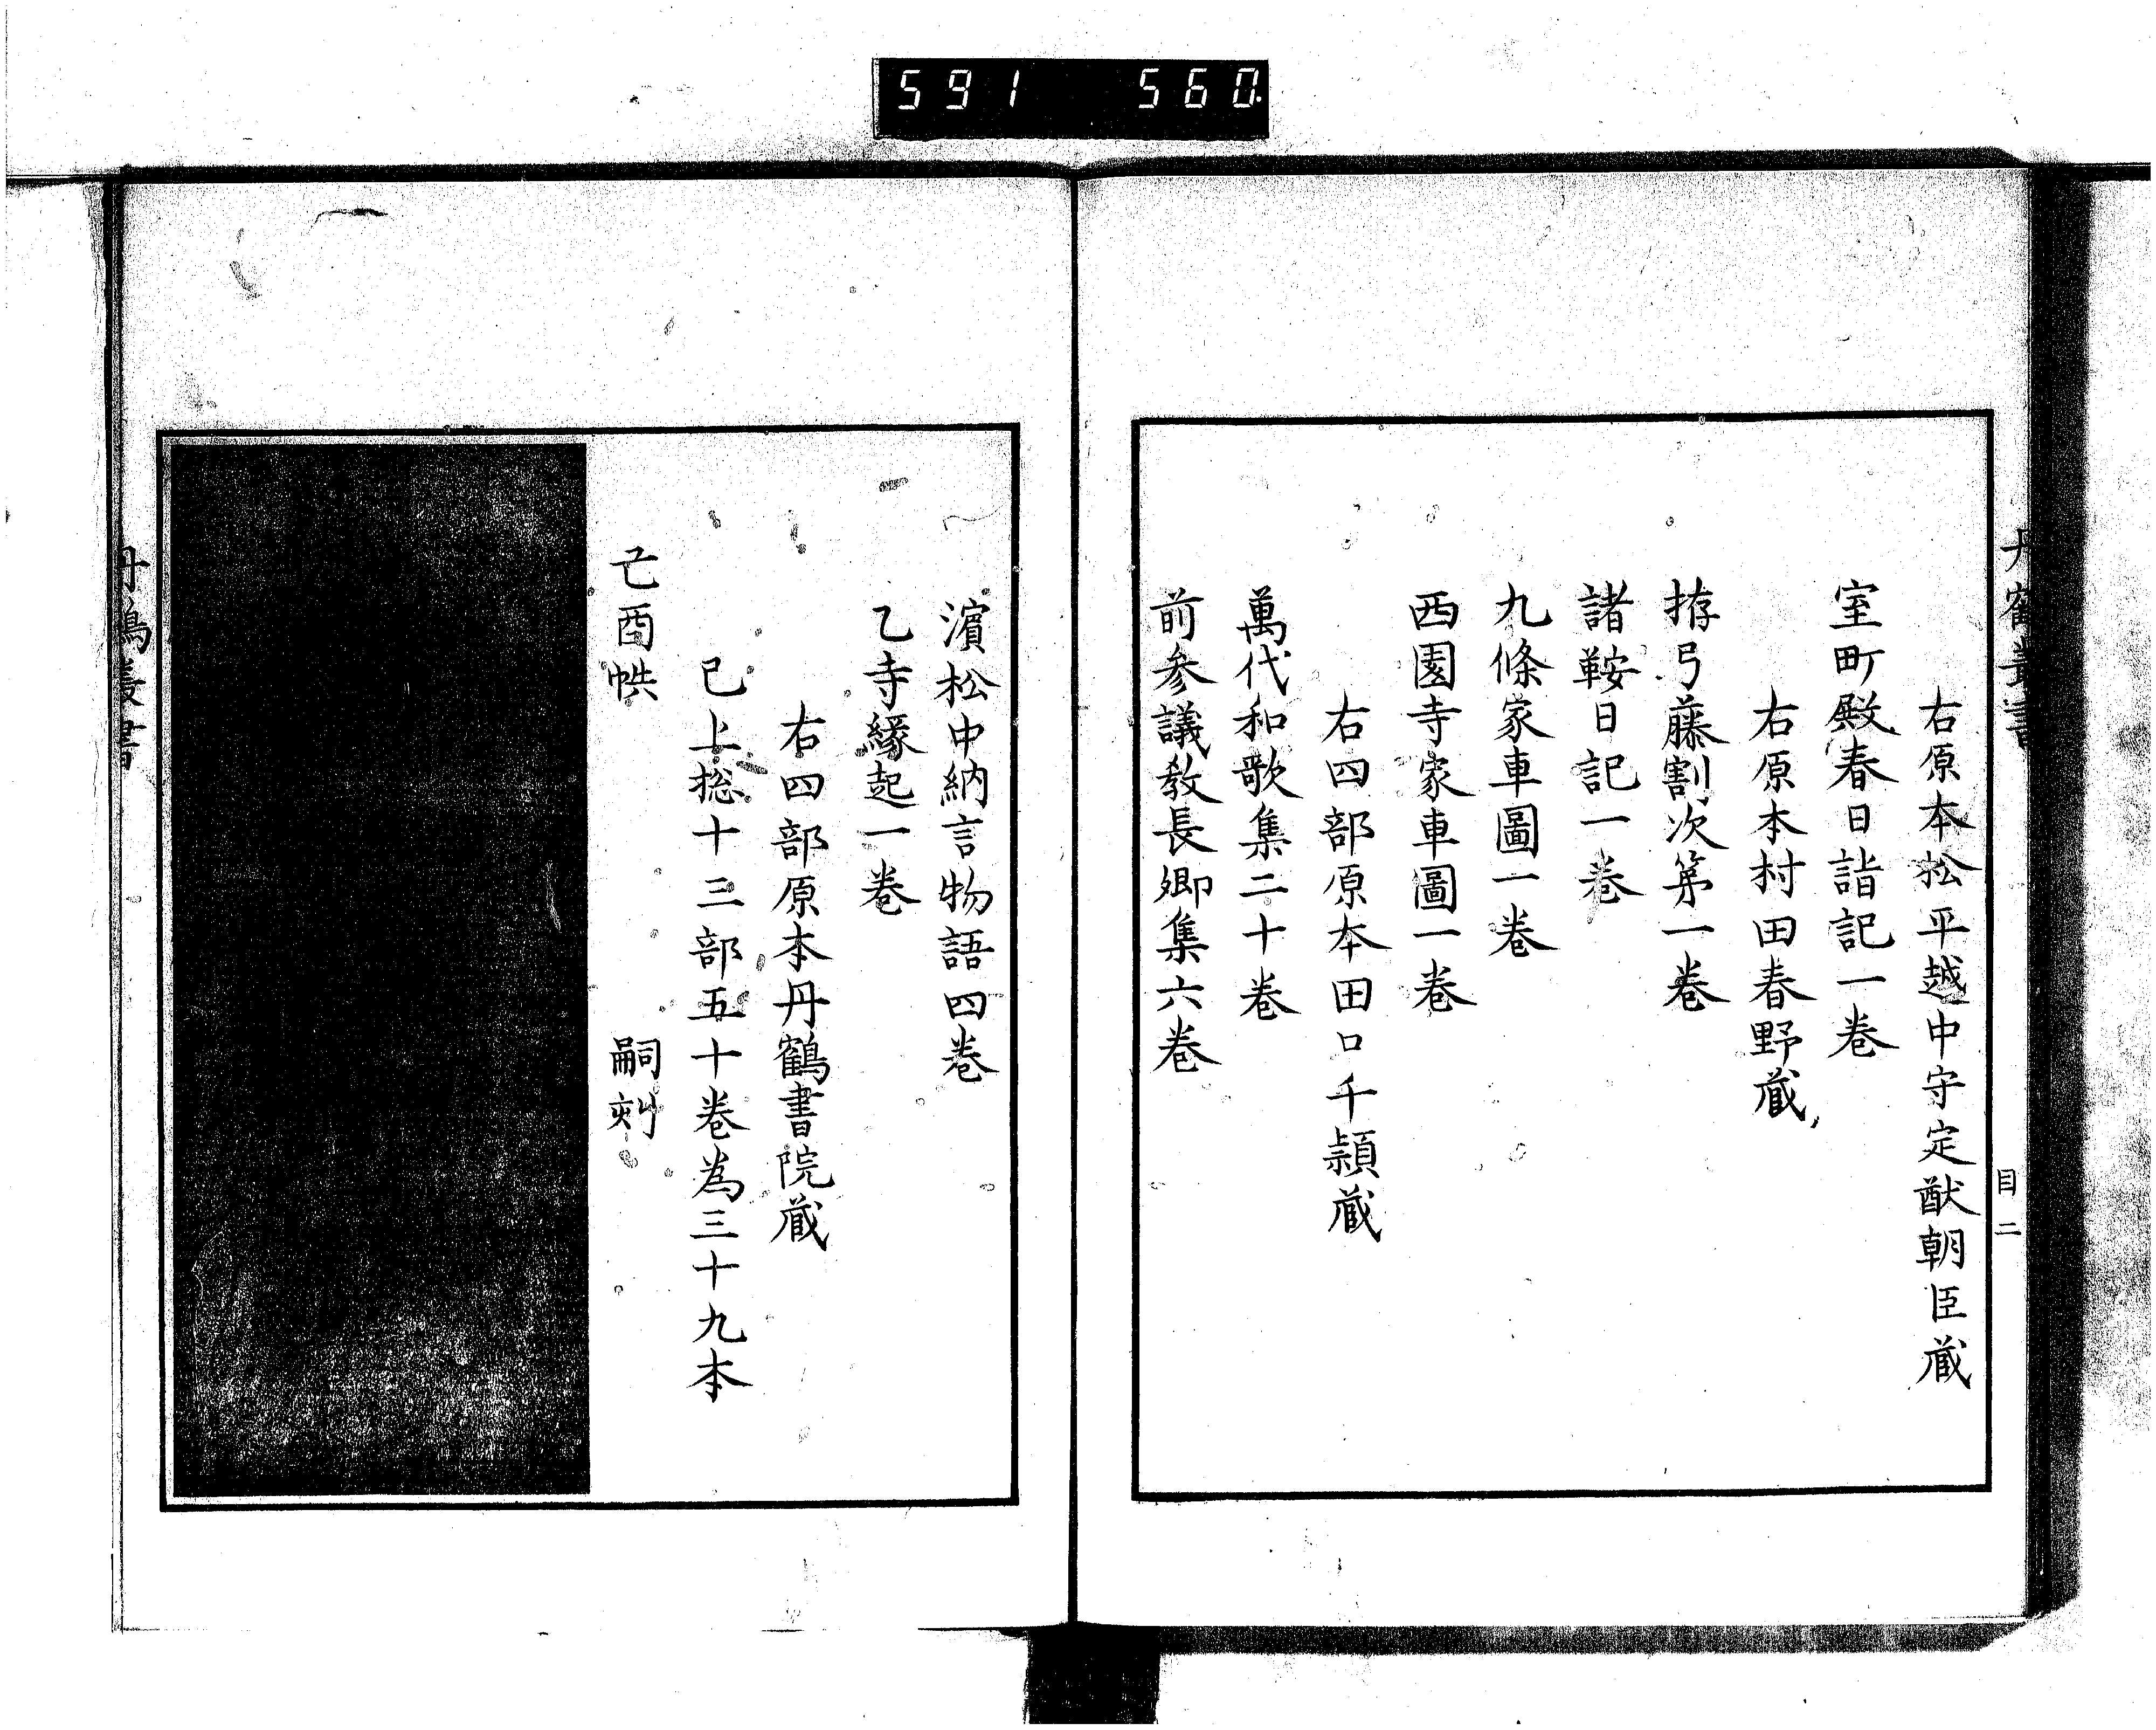 591 560.
丹鶴叢書
目二
右原本松平越中守定猷朝臣蔵
室町殿春日詣記一巻
右原本村田春野蔵
拵弓藤割次第一巻
諸鞍日記一巻
九條家車圖一巻
西園寺家車圖一巻
右四部原本田口千頴蔵
萬代和歌集二十巻
前参議教長卿集六巻
濵松中納言物語四巻
乙寺縁起一巻
右四部原本丹鶴書院蔵
已上捴十三部五十巻為三十九本
己酉帙 嗣刻
丹鶴叢書